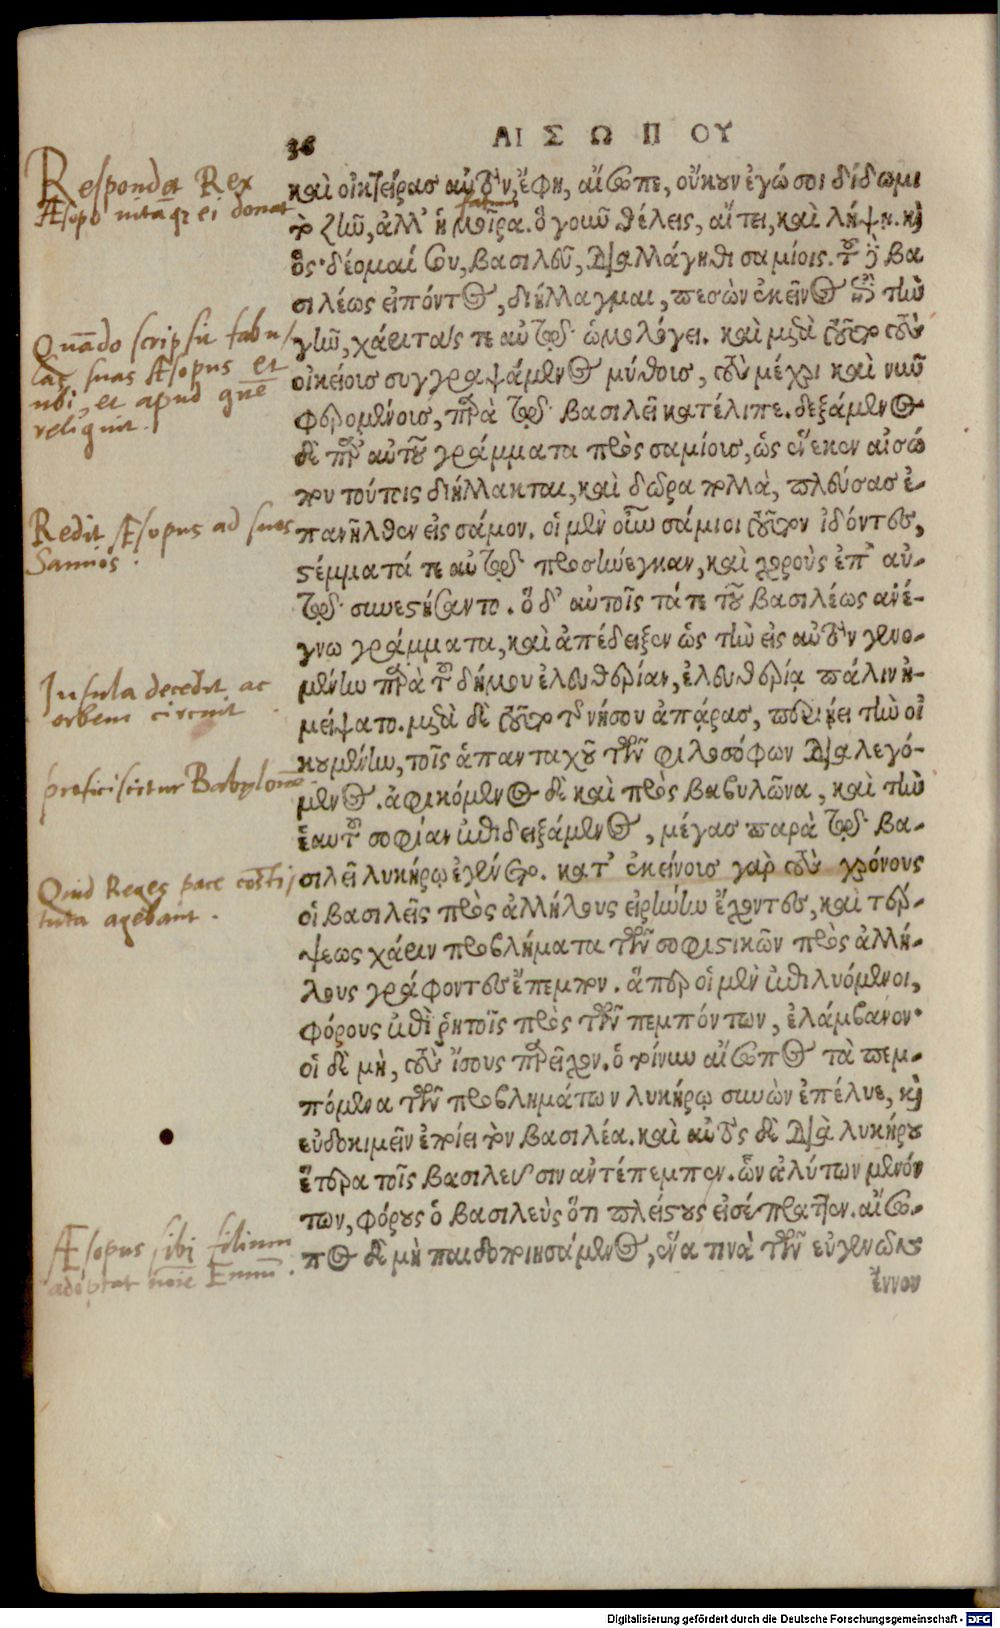 36
ΑΙΣΩΠΟΥ
Respondet Rex
Æsopo uitāq̃ ei donat
fatum
καὶ οἰκτείρασ αὐτὸν, ἔφη, αἴσωπε, οὔκουν ἐγώ σοι δίδωμι
τὸ ζῆν, ἀλλ' ἡ μοῖρα. ὃ γοῦν θέλεις, αἴτει, καὶ λήψῃ. καὶ
ὃς· δέομαί σου, βασιλεῦ, διαλλάγηθι σαμίοις. τοῦ δὲ βα
σιλέως εἰπόντος, διήλλαγμαι, πεσὼν ἐκεῖνος ἐπὶ τὴν
γῆν, χάριτάς τε αὐτῷ ὡμολόγει. καὶ μετὰ ταῦτα τοὺς
Quādo scripsit fabu/
las suas Æsopus et
ubi, et apud quē
reliquit.
οἰκείοισ συγγραψάμενος μύθοισ, τοὺς μέχρι καὶ νῦν
φερομένοισ, παρὰ τῷ βασιλεῖ κατέλιπε. δεξάμενος
δὲ παρ' αὐτοῦ γράμματα πρὸς σαμίοισ, ὡς ἕνεκεν αἰσώ
που τούτοις διήλλακται, καὶ δῶρα πολλὰ, πλεύσασ ἐ-
Redit Æsopus ad suos
Samios.
πανῆλθεν εἰς σάμον. οἱ μὲν οὖν σάμιοι τοῦτον ἰδόντες,
στέμματά τε αὐτῷ προσήνεγκαν, καὶ χοροὺς ἐπ' αὐ-
τῷ συνεστήσαντο. ὁ δ' αὐτοῖς τά τε τοῦ βασιλέως ἀνέ-
γνω γράμματα, καὶ ἀπέδειξεν ὡς τὴν εἰς αὐτὸν γενο-
μένην παρὰ τοῦ δήμου ἐλευθερίαν, ἐλευθερίᾳ πάλιν ἠ-
Insula decedit ac
orbem circuit
μείψατο. μετὰ δὲ ταῦτα τῆς νήσου ἀπάρασ, περιῄει τὴν οἰ
κουμένην, τοῖς ἁπανταχοῦ τῶν φιλοσόφων διαλεγό-
proficiscitur Babylonē
μενος. ἀφικόμενος δὲ καὶ πρὸς βαβυλῶνα, καὶ τὴν
ἑαυτοῦ σοφίαν ἐπιδειξάμενος, μέγασ παρὰ τῷ βα-
Quid Reges pace cōsti/
tuta agebant.
σιλεῖ λυκήρῳ ἐγένετο. κατ' ἐκείνοισ γὰρ τοὺς χρόνους
οἱ βασιλεῖς πρὸς ἀλλήλους εἰρήνην ἔχοντες, καὶ τέρ-
ψεως χάριν προβλήματα τῶν σοφιστικῶν πρὸς ἀλλή-
λους γράφοντες ἔπεμπον. ἅπερ οἱ μὲν ἐπιλυόμενοι,
φόρους ἐπὶ ῥητοῖς πρὸς τῶν πεμπόντων, ἐλάμβανον·
οἱ δὲ μὴ, τοὺς ἴσους παρεῖχον. ὁ τοίνυν αἴσωπος τὰ πεμ-
πόμενα τῶν προβλημάτων λυκήρῳ συνιὼν ἐπέλυε, καὶ
εὐδοκιμεῖν ἐποίει τὸν βασιλέα. καὶ αὐτὸς δὲ διὰ λυκήρου
ἕτερα τοῖς βασιλεῦσιν ἀντέπεμπεν. ὧν ἀλύτων μενόν
των, φόρους ὁ βασιλεὺς ὅτι πλείστους εἰσέπραττεν. αἴσω-
Æsopus sibi filium
adoptat noīe Ennū.
πος δὲ μὴ παιδοποιησάμενος, ἕνα τινὰ τῶν εὐγενῶν
ἔννον
Digitalisierung gefördert durch die Deutsche Forschungsgemeinschaft - DFG